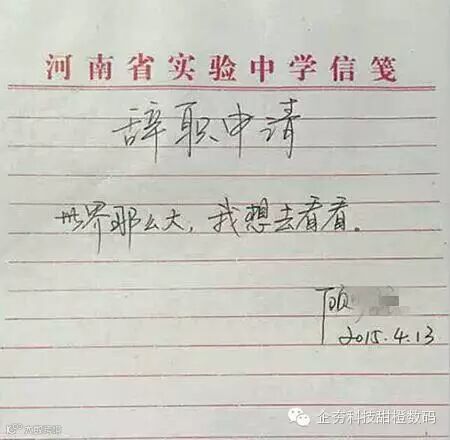 河南省实验中学信笺
辞职申请
世界那么大，我想去看看。
顾
2015.4.13
企夯科技甜橙数码